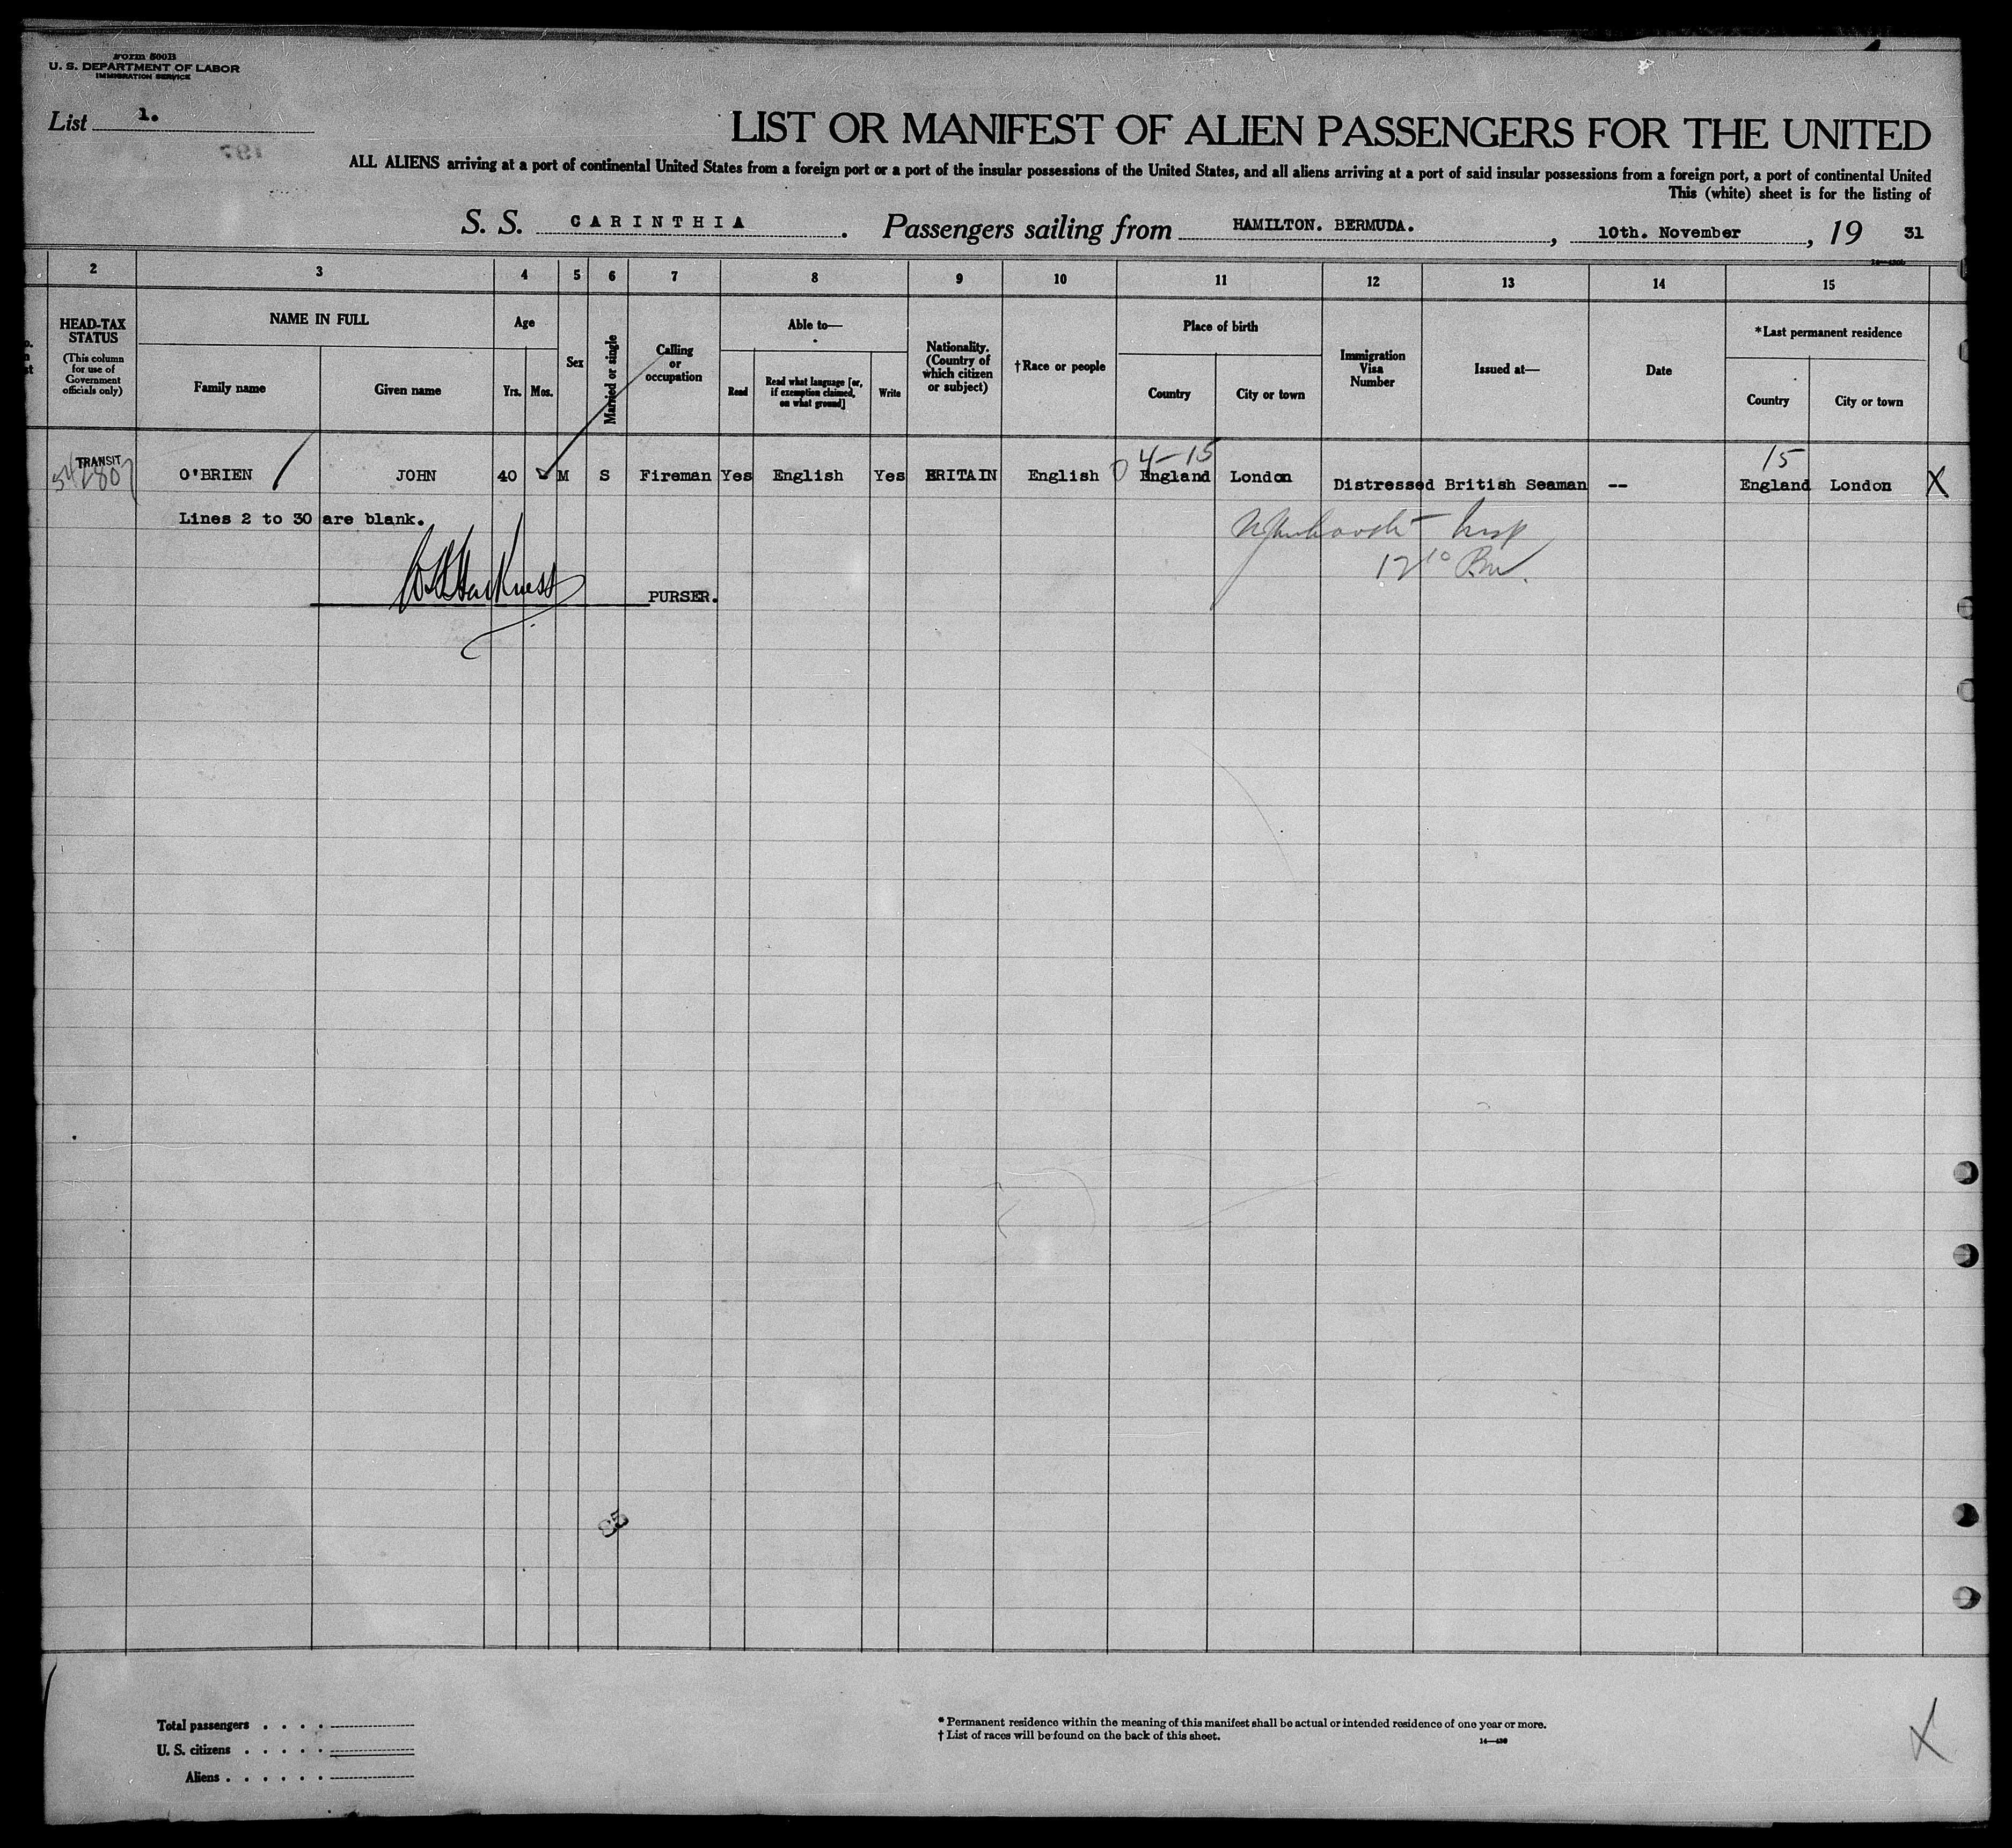 Form 500B
U. S. DEPARTMENT OF LABOR
IMMIGRATION SERVICE
List 1.
LIST OR MANIFEST OF ALIEN PASSENGERS FOR THE UNITED
ALL ALIENS arriving at a port of continental United States from a foreign port or a port of the insular possessions of the United States, and all aliens arriving at a port of said insular possessions from a foreign port, a port of continental United
This (white) sheet is for the listing of
S. S. CARINTHIA. Passengers sailing from HAMILTON. BERMUDA., 10th. November, 19 31
2 3 4 5 6 7 8 9 10 11 12 13 14 15
HEAD-TAX STATUS
(This column for use of Government officials only)
NAME IN FULL
Family name
Given name
Age
Yrs. Mos.
Sex
Married or single
Calling or occupation
Able to—
Read
Read what language [or, if exemption claimed, on what ground]
Write
Nationality. (Country of which citizen or subject)
†Race or people
Place of birth
Country
City or town
Immigration Visa Number
Issued at—
Date
*Last permanent residence
Country
City or town
4-15
15
TRANSIT
O'BRIEN JOHN 40 M S Fireman Yes English Yes BRITAIN English England London Distressed British Seaman -- England London X
Lines 2 to 30 are blank.
PURSER.
85
Total passengers . . . .
U. S. citizens . . . . .
Aliens . . . . . .
* Permanent residence within the meaning of this manifest shall be actual or intended residence of one year or more.
† List of races will be found on the back of this sheet.
X